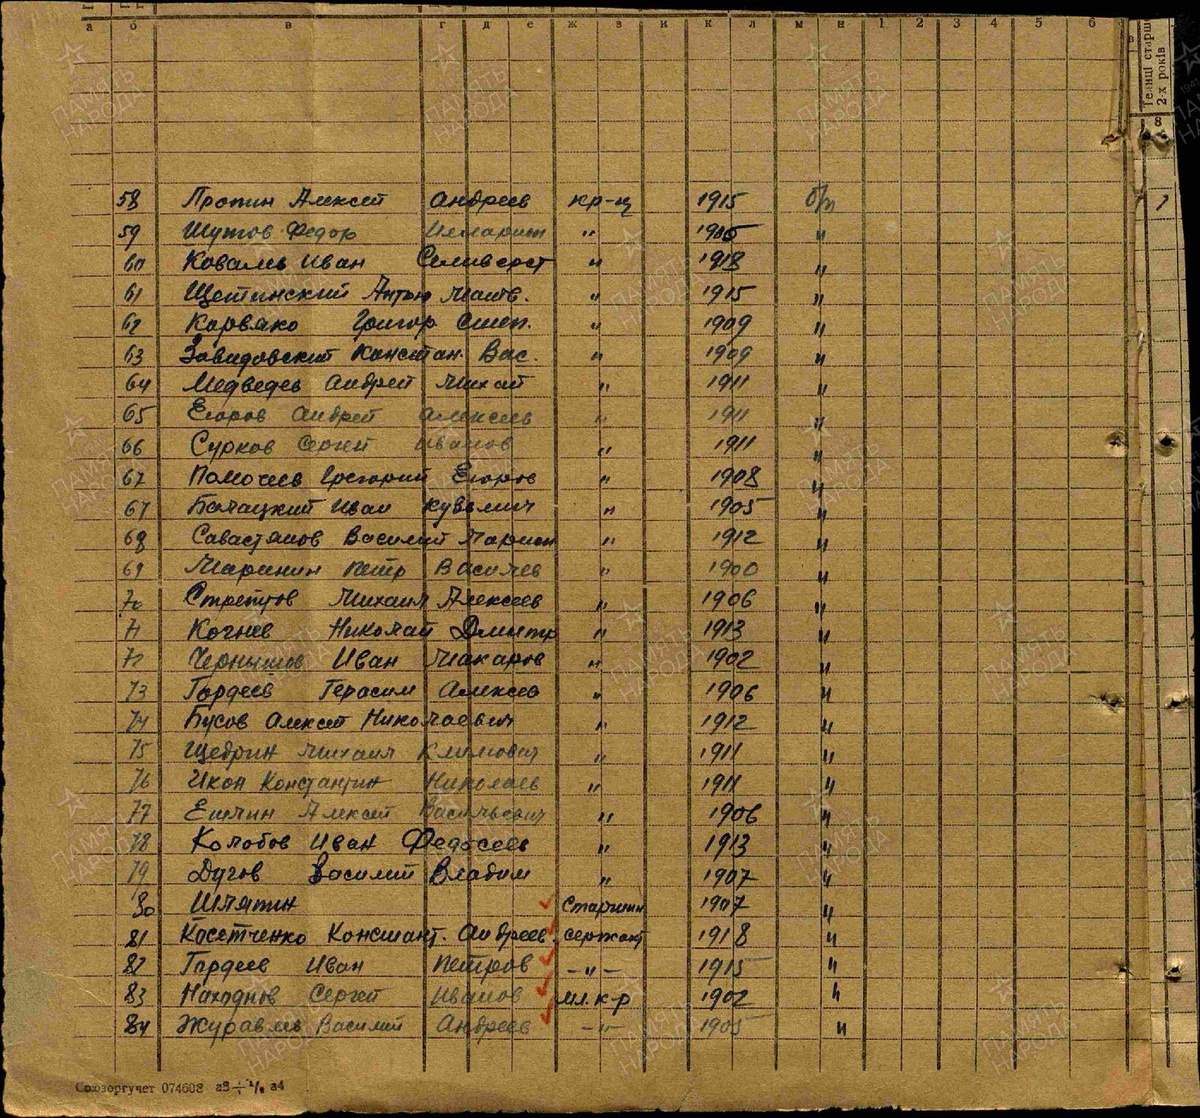 а б в г д е ж з и к л м н 1 2 3 4 5 6
Телиці старші
2-х років
8
58 Пропин Алексей Андреев кр-ц 1915 б/п 7
59 Шутов Федор 1905 "
60 Коваль Иван Селиверст " 1913 "
61 Щетинский Антон Матв. " 1915 "
62 Корвяко Григор Степ. " 1909 "
63 Завидовский Констан. Вас. " 1909 "
64 Медведев Андрей Михай " 1911 "
65 Егоров Андрей Алексеев " 1911 "
66 Сурков Сергей Иванов " 1911 "
67 Помочев Григорий Егоров " 1908 "
67 Балацкий Иван Кузьмич " 1905 "
68 Савастянов Василий " 1912 "
69 Маринин Петр Василев " 1900 "
70 Стрепцов Михаил Алексеев " 1906 "
71 Кочнев Николай Дмитр " 1913 "
72 Чернышов Иван Макаров " 1902 "
73 Гордеев Герасим Алексеев " 1906 "
74 Бусов Алексей Николаевич " 1912 "
75 Щедрин Михаил Климович " 1911 "
76 Икон Константин Николаев " 1911 "
77 Ешлин Алексей Васильевич " 1906 "
78 Колобов Иван Федосеев " 1913 "
79 Дугов Василий Владим " 1907 "
80 Шляпин старшин 1907 "
81 Косетченко Констант. Андреев. сержант 1918 "
82 Гордеев Иван Петров -"- 1915 "
83 Находнов Сергей Иванов мл. к-р 1902 "
84 Журавлев Василий Андреев -"- 1905 "
Союзоргучет 074608 а3 ÷ 1/8 а4
ПАМЯТЬ НАРОДА